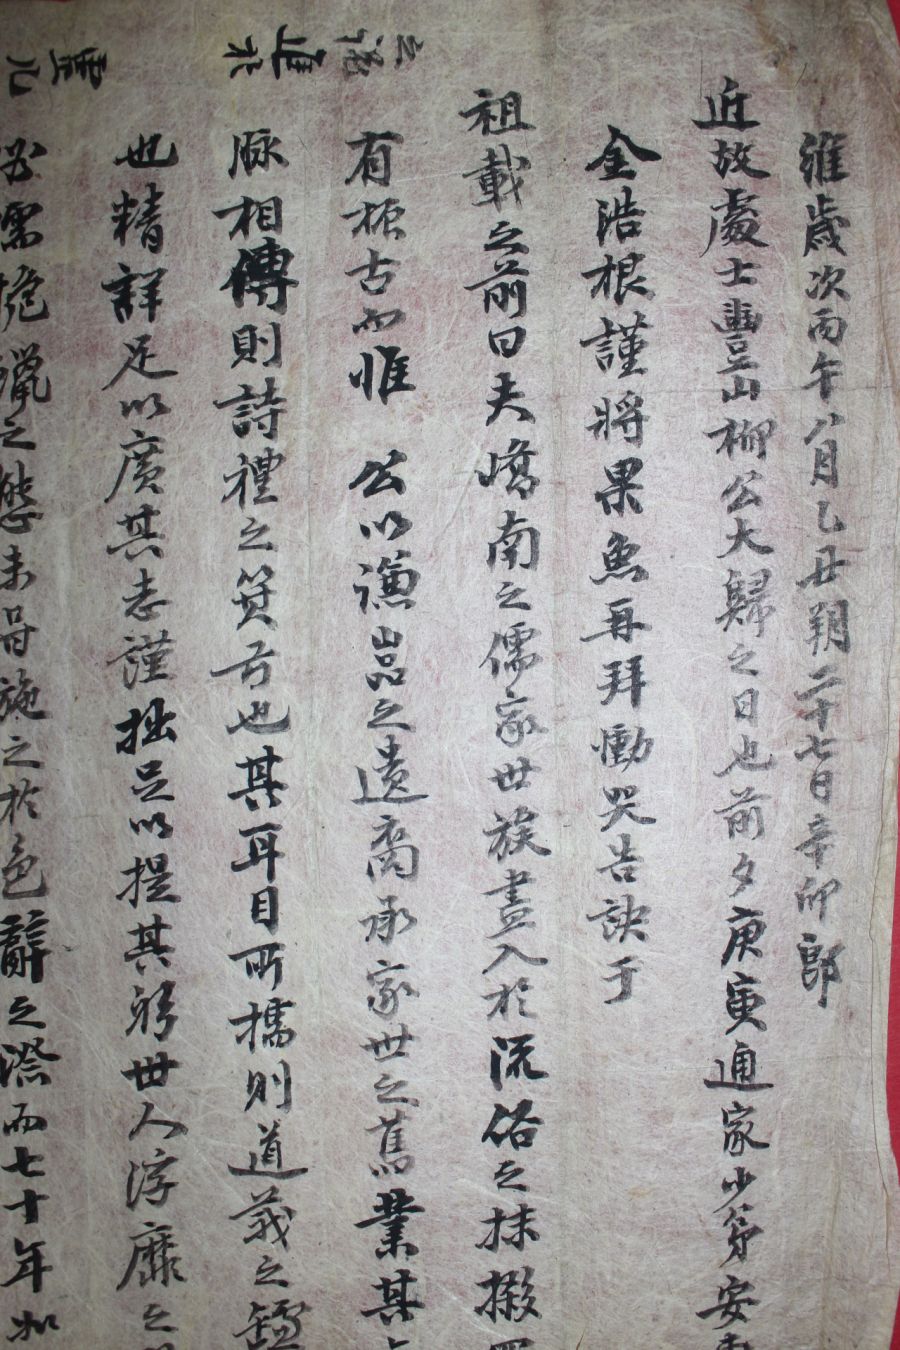 維歲次丙午八月乙丑朔二十七日辛卯郎
近故處士豊山柳公大歸之日也前夕庚寅通家少弟安東
金浩根謹將果魚再拜慟哭告訣于
祖載之前曰夫嶠南之儒家世族盡入於流俗之抹摋
有振古而惟 公以謙嵒之遺裔承家世之舊業其
脉相傳則詩禮之質否也其耳目所擩則道義之
也精詳足以廣其志謹拙足以提其躬世人浮靡之
之態未甞施之於色辭之際而七十年如